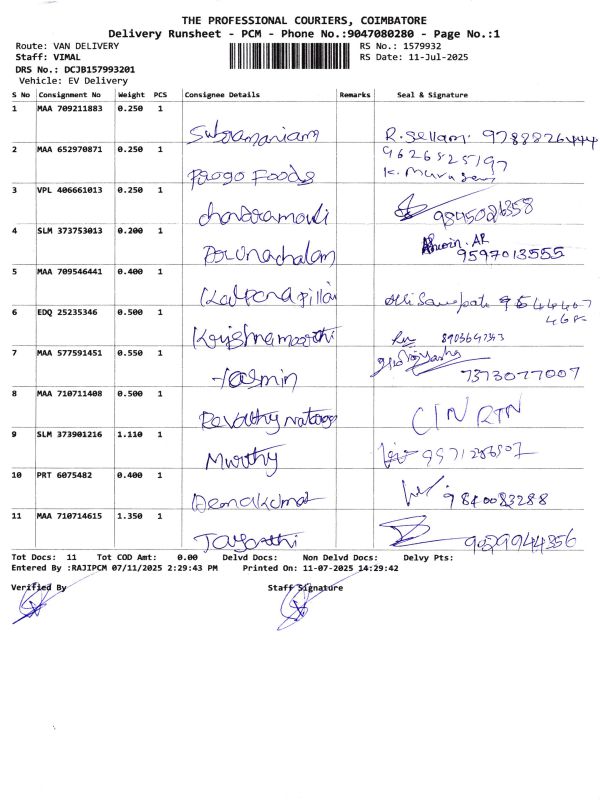 THE PROFESSIONAL COURIERS, COIMBATORE
Delivery Runsheet - PCM - Phone No.:9047080280 - Page No.:1
Route: VAN DELIVERY RS No.: 1579932
Staff: VIMAL RS Date: 11-Jul-2025
DRS No.: DCJB157993201
Vehicle: EV Delivery
S No Consignment No Weight PCS Consignee Details Remarks Seal & Signature
1 MAA 709211883 0.250 1
Subramaniam R. Sellam. 9788826444
2 MAA 652970871 0.250 1 9626525197
Foods K. Murugesan
3 VPL 406661013 0.250 1
chandramouli
4 SLM 373753013 0.200 1
Arunachalam 9597013555
5 MAA 709546441 0.400 1
Kalpana pillai
6 EDQ 25235346 0.500 1
Krishnamoorthi
7 MAA 577591451 0.550 1
Yasmin 7373077007
8 MAA 710711408 0.500 1
Revathy CIN RTN
9 SLM 373901216 1.110 1
Murthy
10 PRT 6075482 0.400 1
9840083288
11 MAA 710714615 1.350 1
Jayanthi
Tot Docs: 11 Tot COD Amt: 0.00 Delvd Docs: Non Delvd Docs: Delvy Pts:
Entered By :RAJIPCM 07/11/2025 2:29:43 PM Printed On: 11-07-2025 14:29:42
Verified By Staff Signature